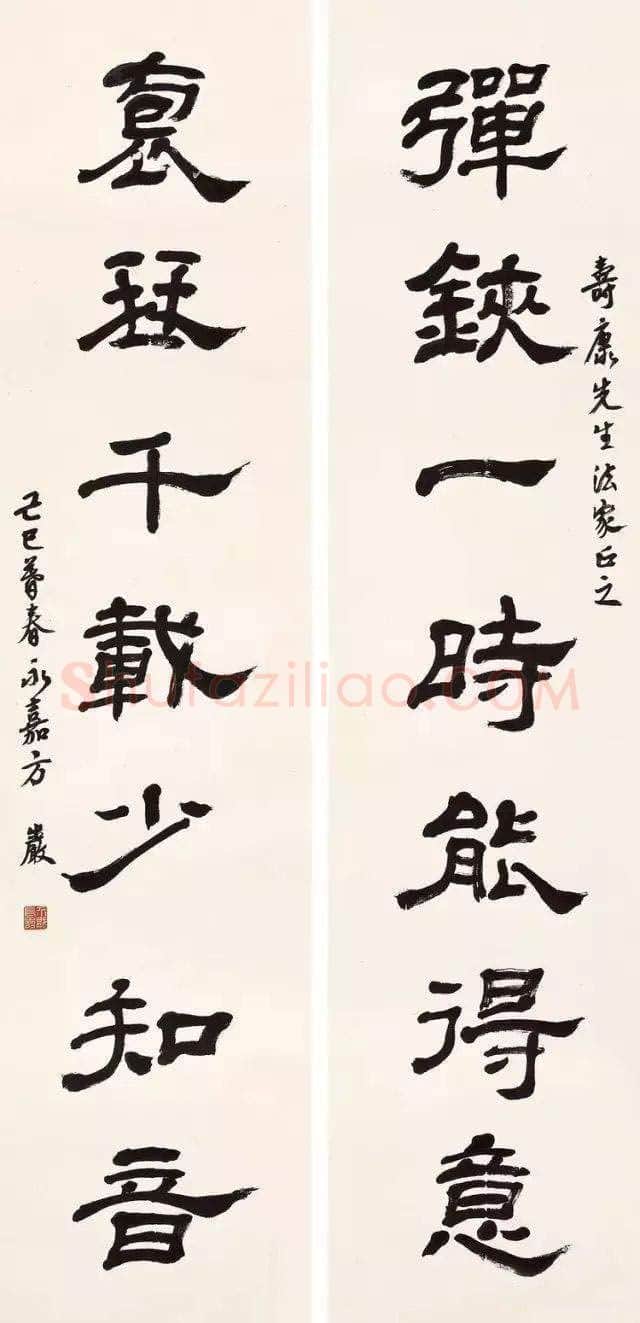 壽康先生法家正之
彈鋏一時能得意
袌琴千載少知音
己巳暮春永嘉方巖
Shufaziliao.COM